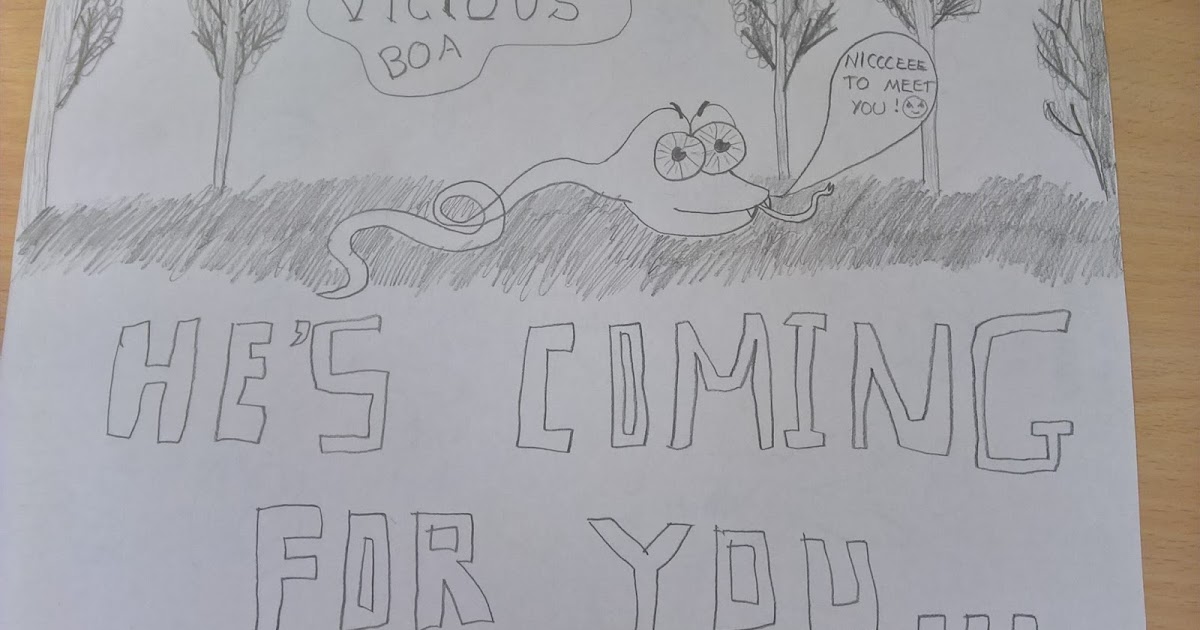 VICIOUS
BOA
NICCCEEE
TO MEET
YOU!
HE'S COMING
FOR YOU...